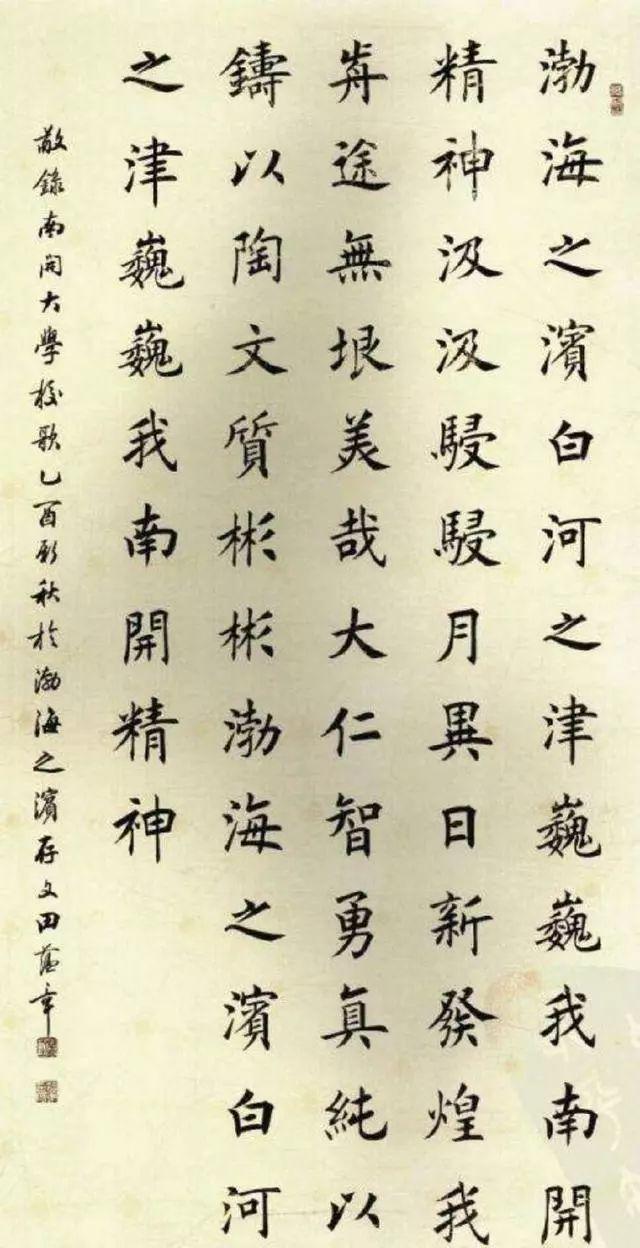 渤海之濱白河之津巍巍我南開
精神汲汲駸駸月異日新發煌我
前途無垠美哉大仁智勇真純以
鑄以陶文質彬彬渤海之濱白河
之津巍巍我南開精神
敬錄南開大學校歌乙酉新秋於渤海之濱存文田蘊章